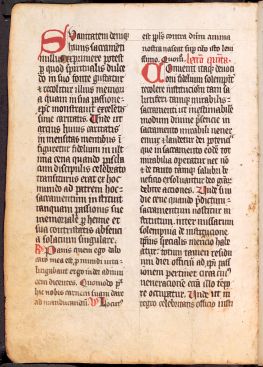 Suauitatem deniq
huius sacramēti
nullus exprimere potest p
quod spiritualis dulce
do in suo fonte gustatur
et recolitur illius memori
a quam in sua passione
xpc monstrauit excelētis
sime caritatis. Unde ut
arcius huius caritatis
in mentibus
figeretur fidelium in ult
ma cena quando pascha
cum discipulis celebrato
transiturus erat ex hoc
mundo ad patrem hoc
sacramentum instituit
tanquam passionis sue
memoriale
sua contristatis absenci
a solacium singulare.
Panis quem ego dabo
caro mea est p mundi uita
litigabant ergo iudei ad inuicē
cem dicentes. Quomodo pt
hic nobis carnem suam dare
ad manducandū. Locut
est ipls contra dm̄ anima
nostra nauseat sup cibo isto leui
ssimo. Quomō. Lectio quinta.
Conuenit itaq deuoci
oni fidelium solempnit
recolere institucionem tam sa
lutiferi tamq mirabilis
sacramenti ut ineffabilem
modum diuine presencie in
sacramento uisibili uener
emur et laudetur dei poten
cia que in sacramento eode tot
mirabilia operatur nec nō
et de tanto tamq salubri be
neficio exsoluantur deo grā
debite actiones. Unde si in
die cene quando predictum
sacramentum noscitur in
stitutum, inter missarum
solempnia de institucione
ipsius specialis mencio hab
eatur. totum tamen residu
um diei officiū ad xpi pass
ionem pertinet circa cuius
ueneracionem ecclia illo temp
re occupatur. Unde ut in
tegro celebritatis officio insti